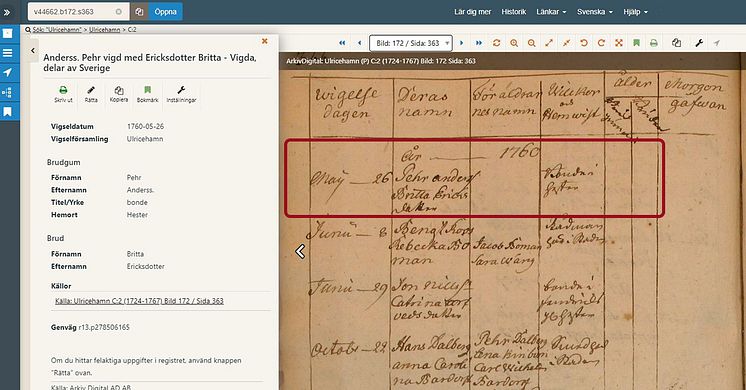 v44662.b172.s363
Öppna
Lär dig mer
Historik
Länkar
Svenska
Hjälp
Sök: "Ulricehamn" > Ulricehamn > C:2
Anderss. Pehr vigd med Ericksdotter Britta - Vigda,
delar av Sverige
Skriv ut
Rätta
Kopiera
Bokmärk
Inställningar
Vigseldatum 1760-05-26
Vigselförsamling Ulricehamn
Brudgum
Förnamn Pehr
Efternamn Anderss.
Titel/Yrke bonde
Hemort Hester
Brud
Förnamn Britta
Efternamn Ericksdotter
Källor
Källa: Ulricehamn C:2 (1724-1767) Bild 172 / Sida 363
Genväg r13.p278506165
Om du hittar felaktiga uppgifter i registret, använd knappen
"Rätta" ovan.
Källa: Arkiv Digital AD AB
Bild: 172 Sida: 363
ArkivDigital: Ulricehamn (P) C:2 (1724-1767) Bild: 172 Sida: 363
wigelse
dagen
Deras
namn
Föräldrar
nes namn
Willkor
och
Hemvist
Ålder
Morgon
gåfwan
År 1760
Maÿ 26
Pehr anders
Britta Ericks
dotter
bonde i
Hester
Junii 8
Bengt
Rebecka Bo
man
Jacob Boman
Sara Wäng
Junii 29
Jon nillss
Catrina
bonde i
Octobr 22
Hans Dalberg
anna Caroli
na Bardorf
Pehr Dalberg
Carl Wilhelm
Bardorf